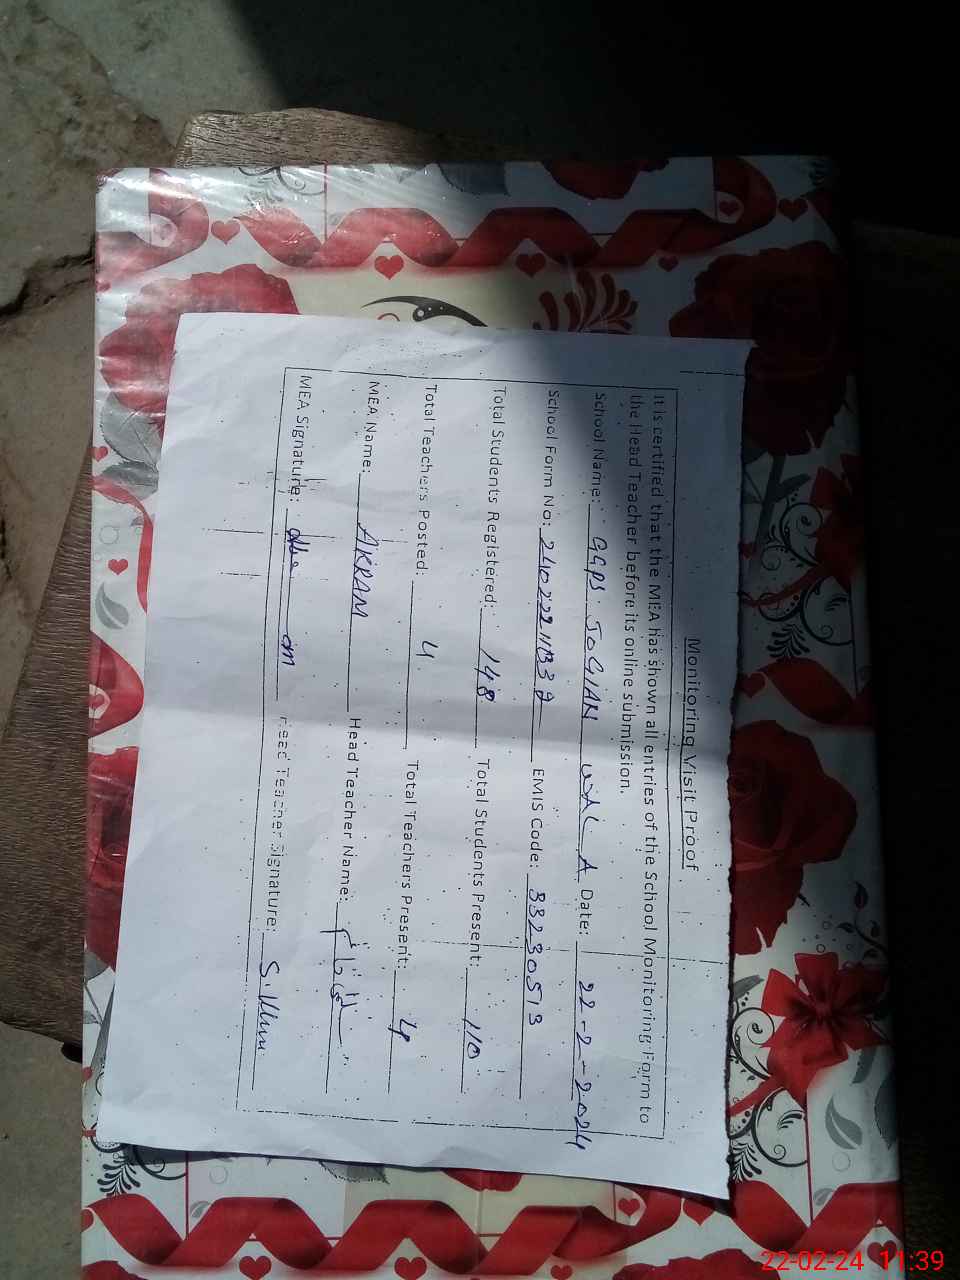 Monitoring Visit Proof
It is certified that the MEA has shown all entries of the School Monitoring Form to
the Head Teacher before its online submission.
School Name: GGPS JOGIAN Date: 22-2-2024
School Form No: EMIS Code: 33230513
Total Students Registered: 148 Total Students Present: 110
Total Teachers Posted: 4 Total Teachers Present: 4
MEA Name: AKRAM Head Teacher Name:
MEA Signature: Head Teacher Signature:
22-02-24 11:39